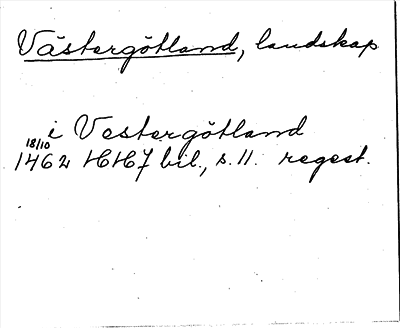 Västergötland, landskap
i Vestergötland
18/10
1462 HH7 bil., s. 11. regest.